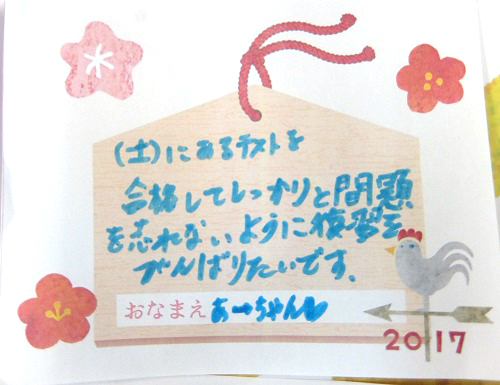 (土)にあるテストを
合格してしっかりと問題
を忘れないように復習を
がんばりたいです。
おなまえ あーちゃん
2017